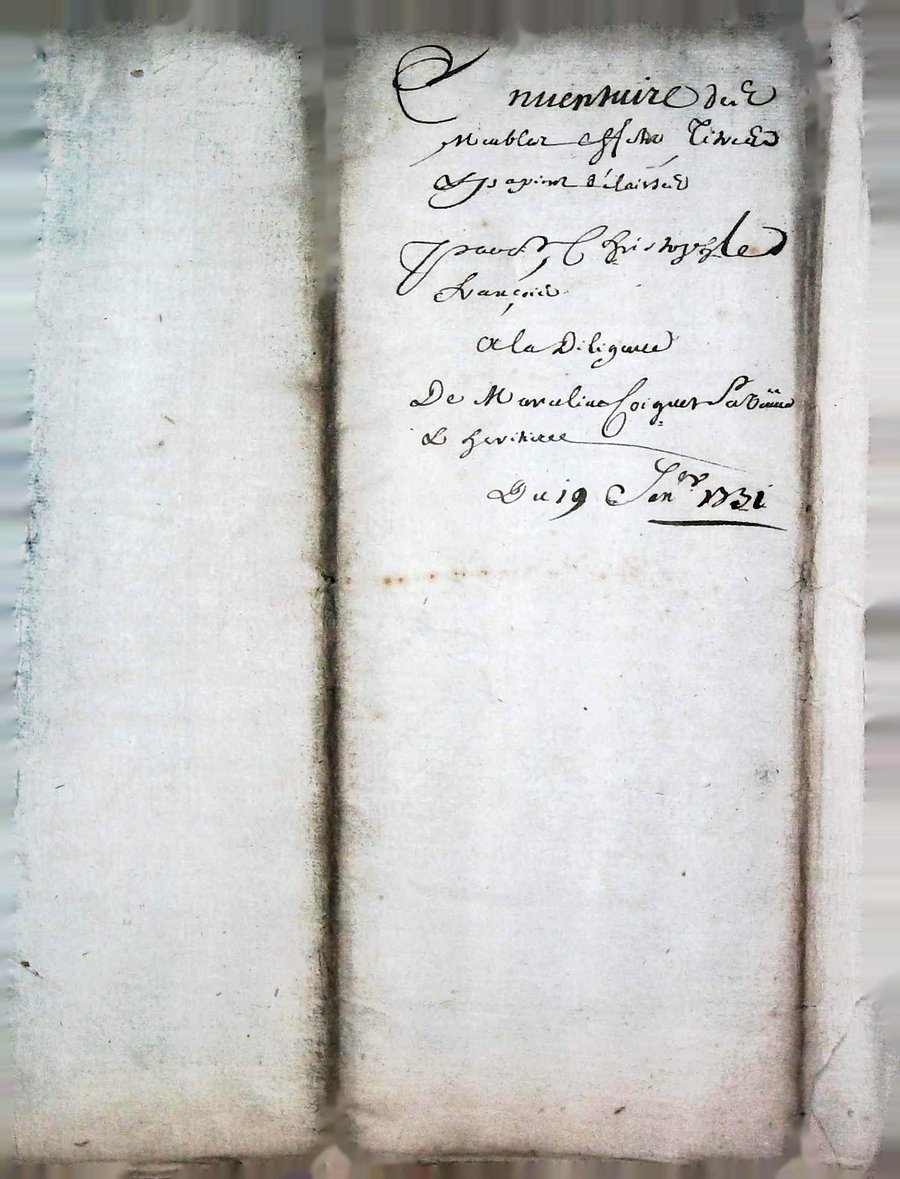 Inuentaire des
Meubles effets Titres
& papiers délaissés
par Christophle
François
A la Diligence
De Marceline Coignet sa Veuue
& heritiere
Du 19 Janer 1731